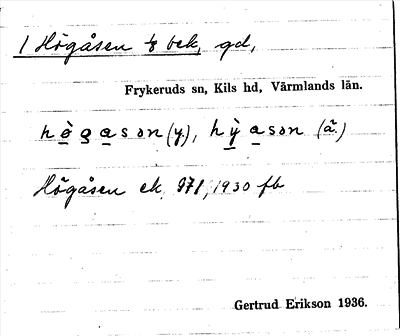 1 Högåsen ⅛ bek, gd,
Frykeruds sn, Kils hd, Värmlands län.
hø̀gasən (y.), hỳasən (ä.)
Högåsen ek. 971, 1930 fb
Gertrud Erikson 1936.